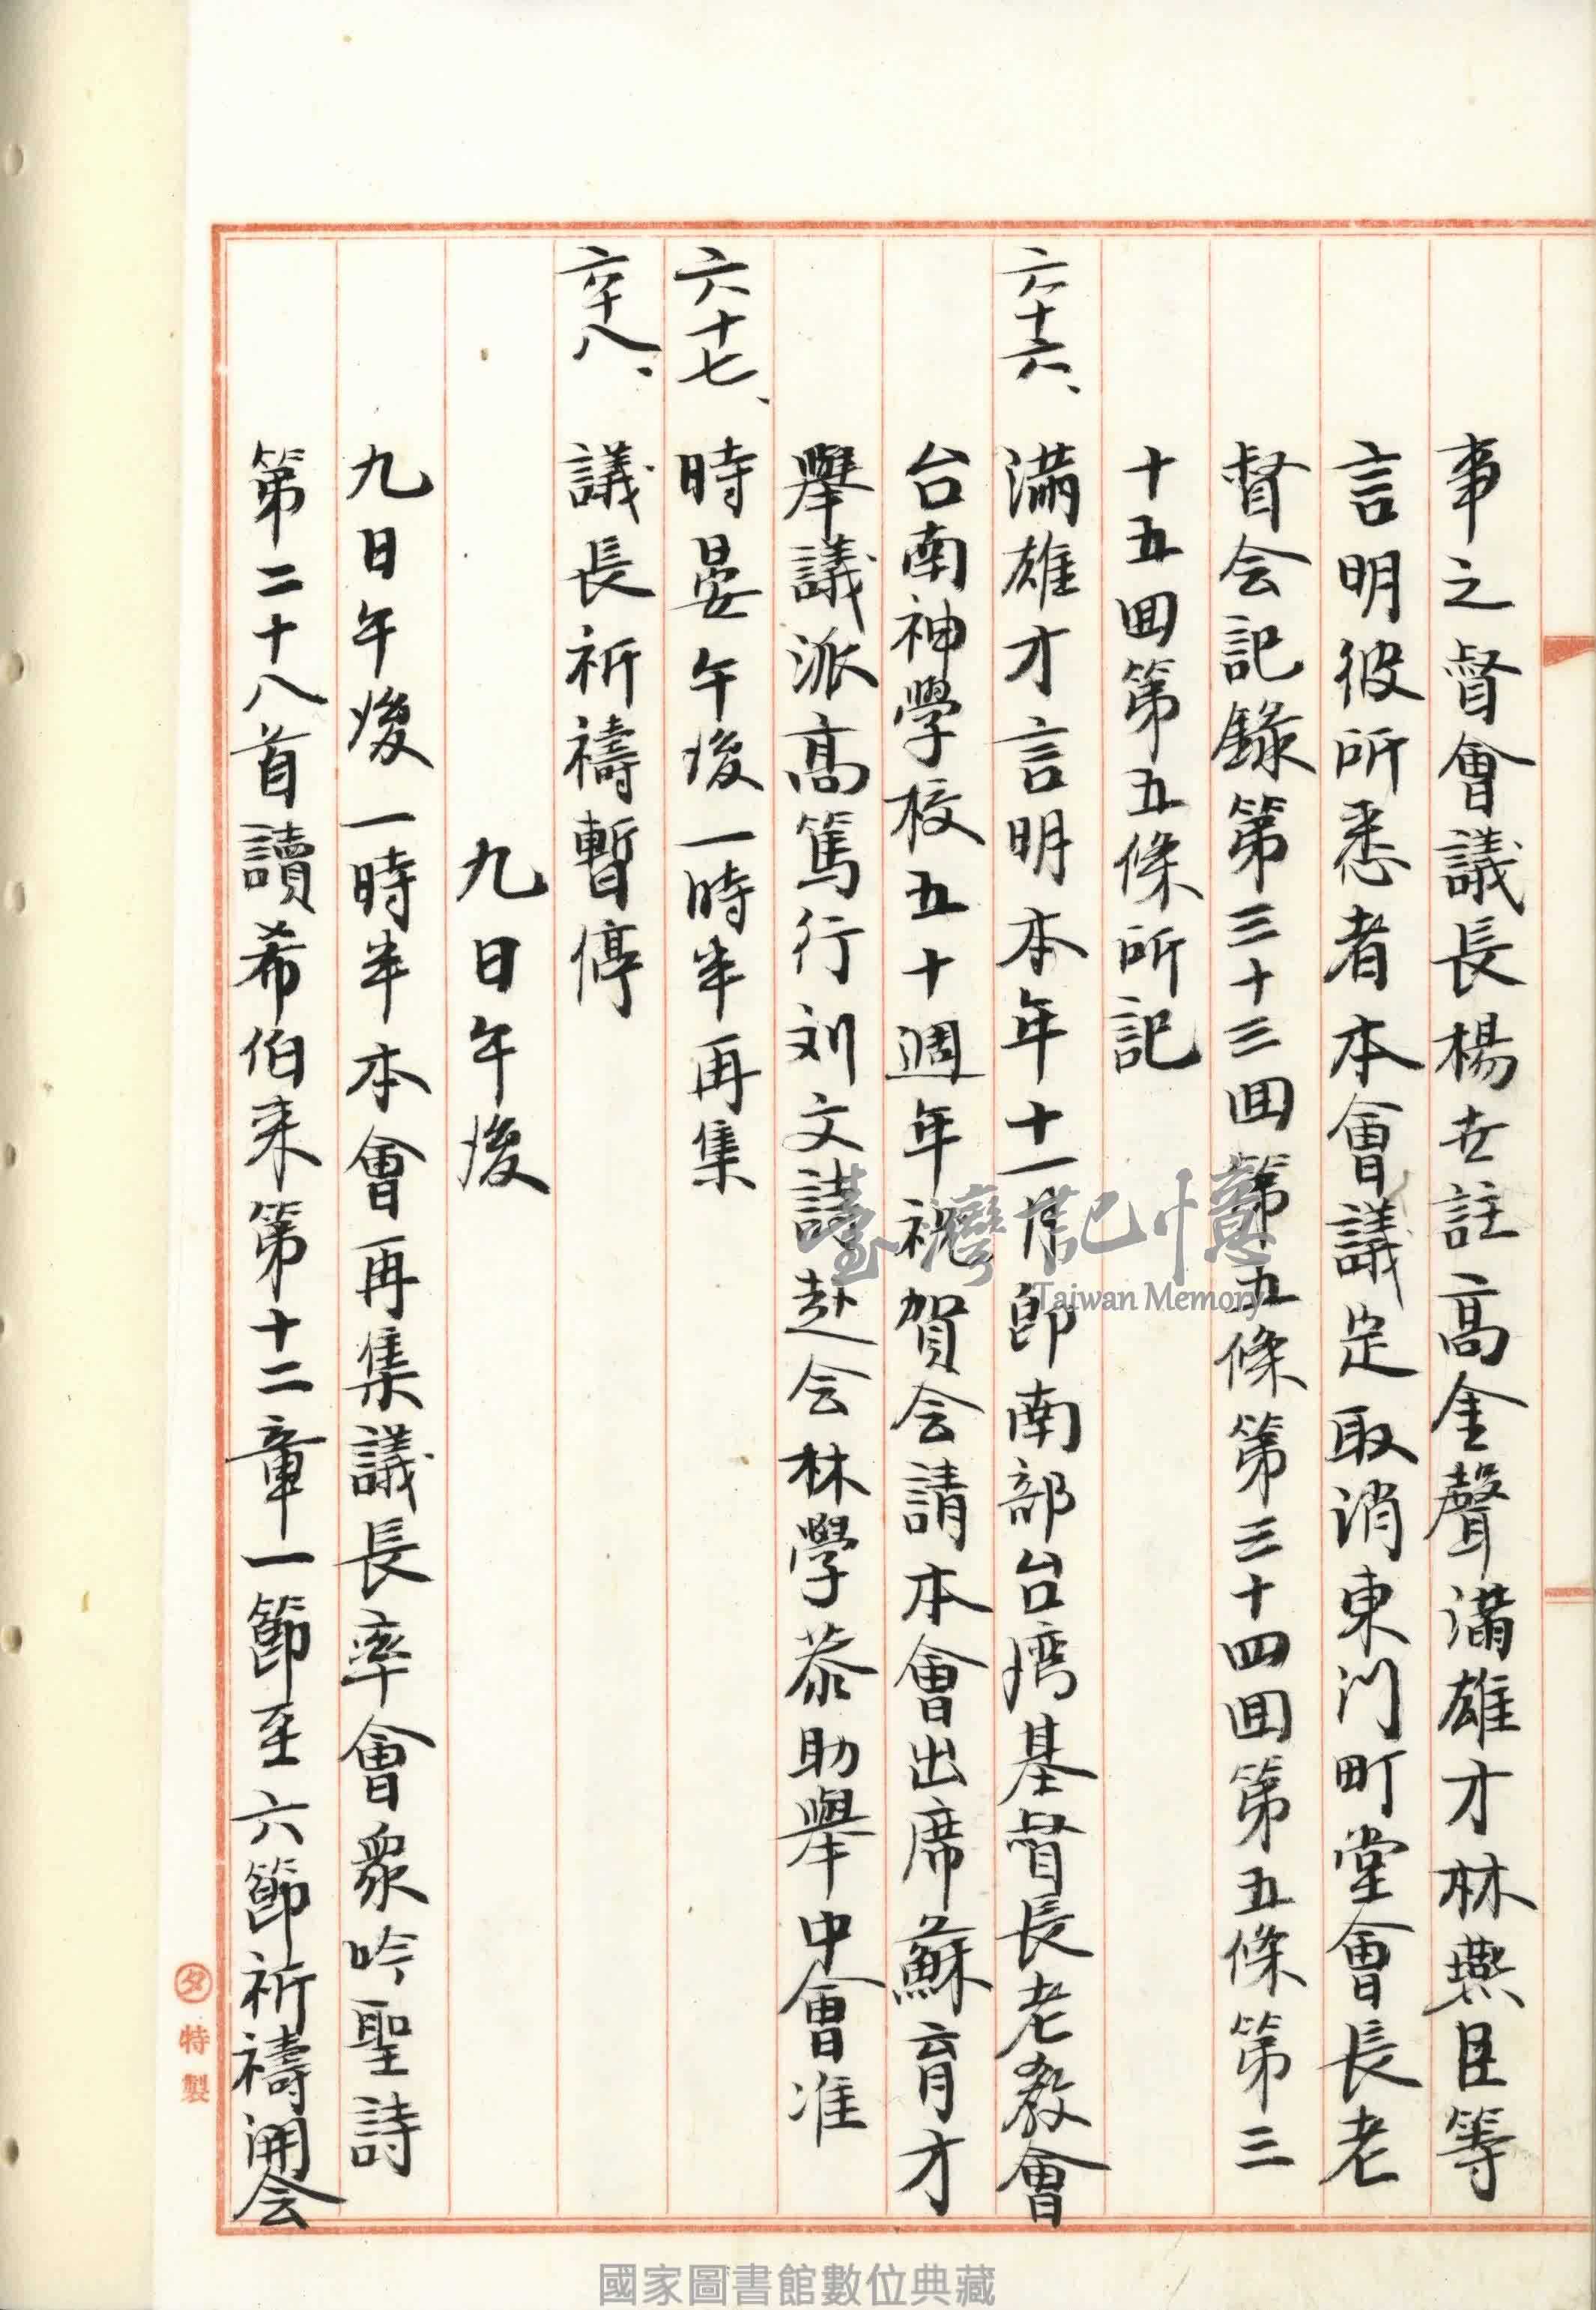 事之督會議長楊世註高金聲滿雄才林燕臣等
言明彼所悉者本會議定取消東门町堂會長老
督会記錄第三十三囬第五條第三十四囬第五條第三
十五囬第五條所記
六十六、滿雄才言明本年十一月郎南部台湾基督長老教會
台南神學校五十週年祝賀会請本會出席蘇育才
舉議派高篤行刘文詩赴会林學恭助舉中會准
六十七、時晏午後一時半再集
六十八、議長祈禱暫停
九日午後
九日午後一時半本會再集議長率會衆吟聖詩
第二十八首讀希伯来第十二章一節至六節祈禱開会
タ特製
臺灣記憶
Taiwan Memory
國家圖書館數位典藏